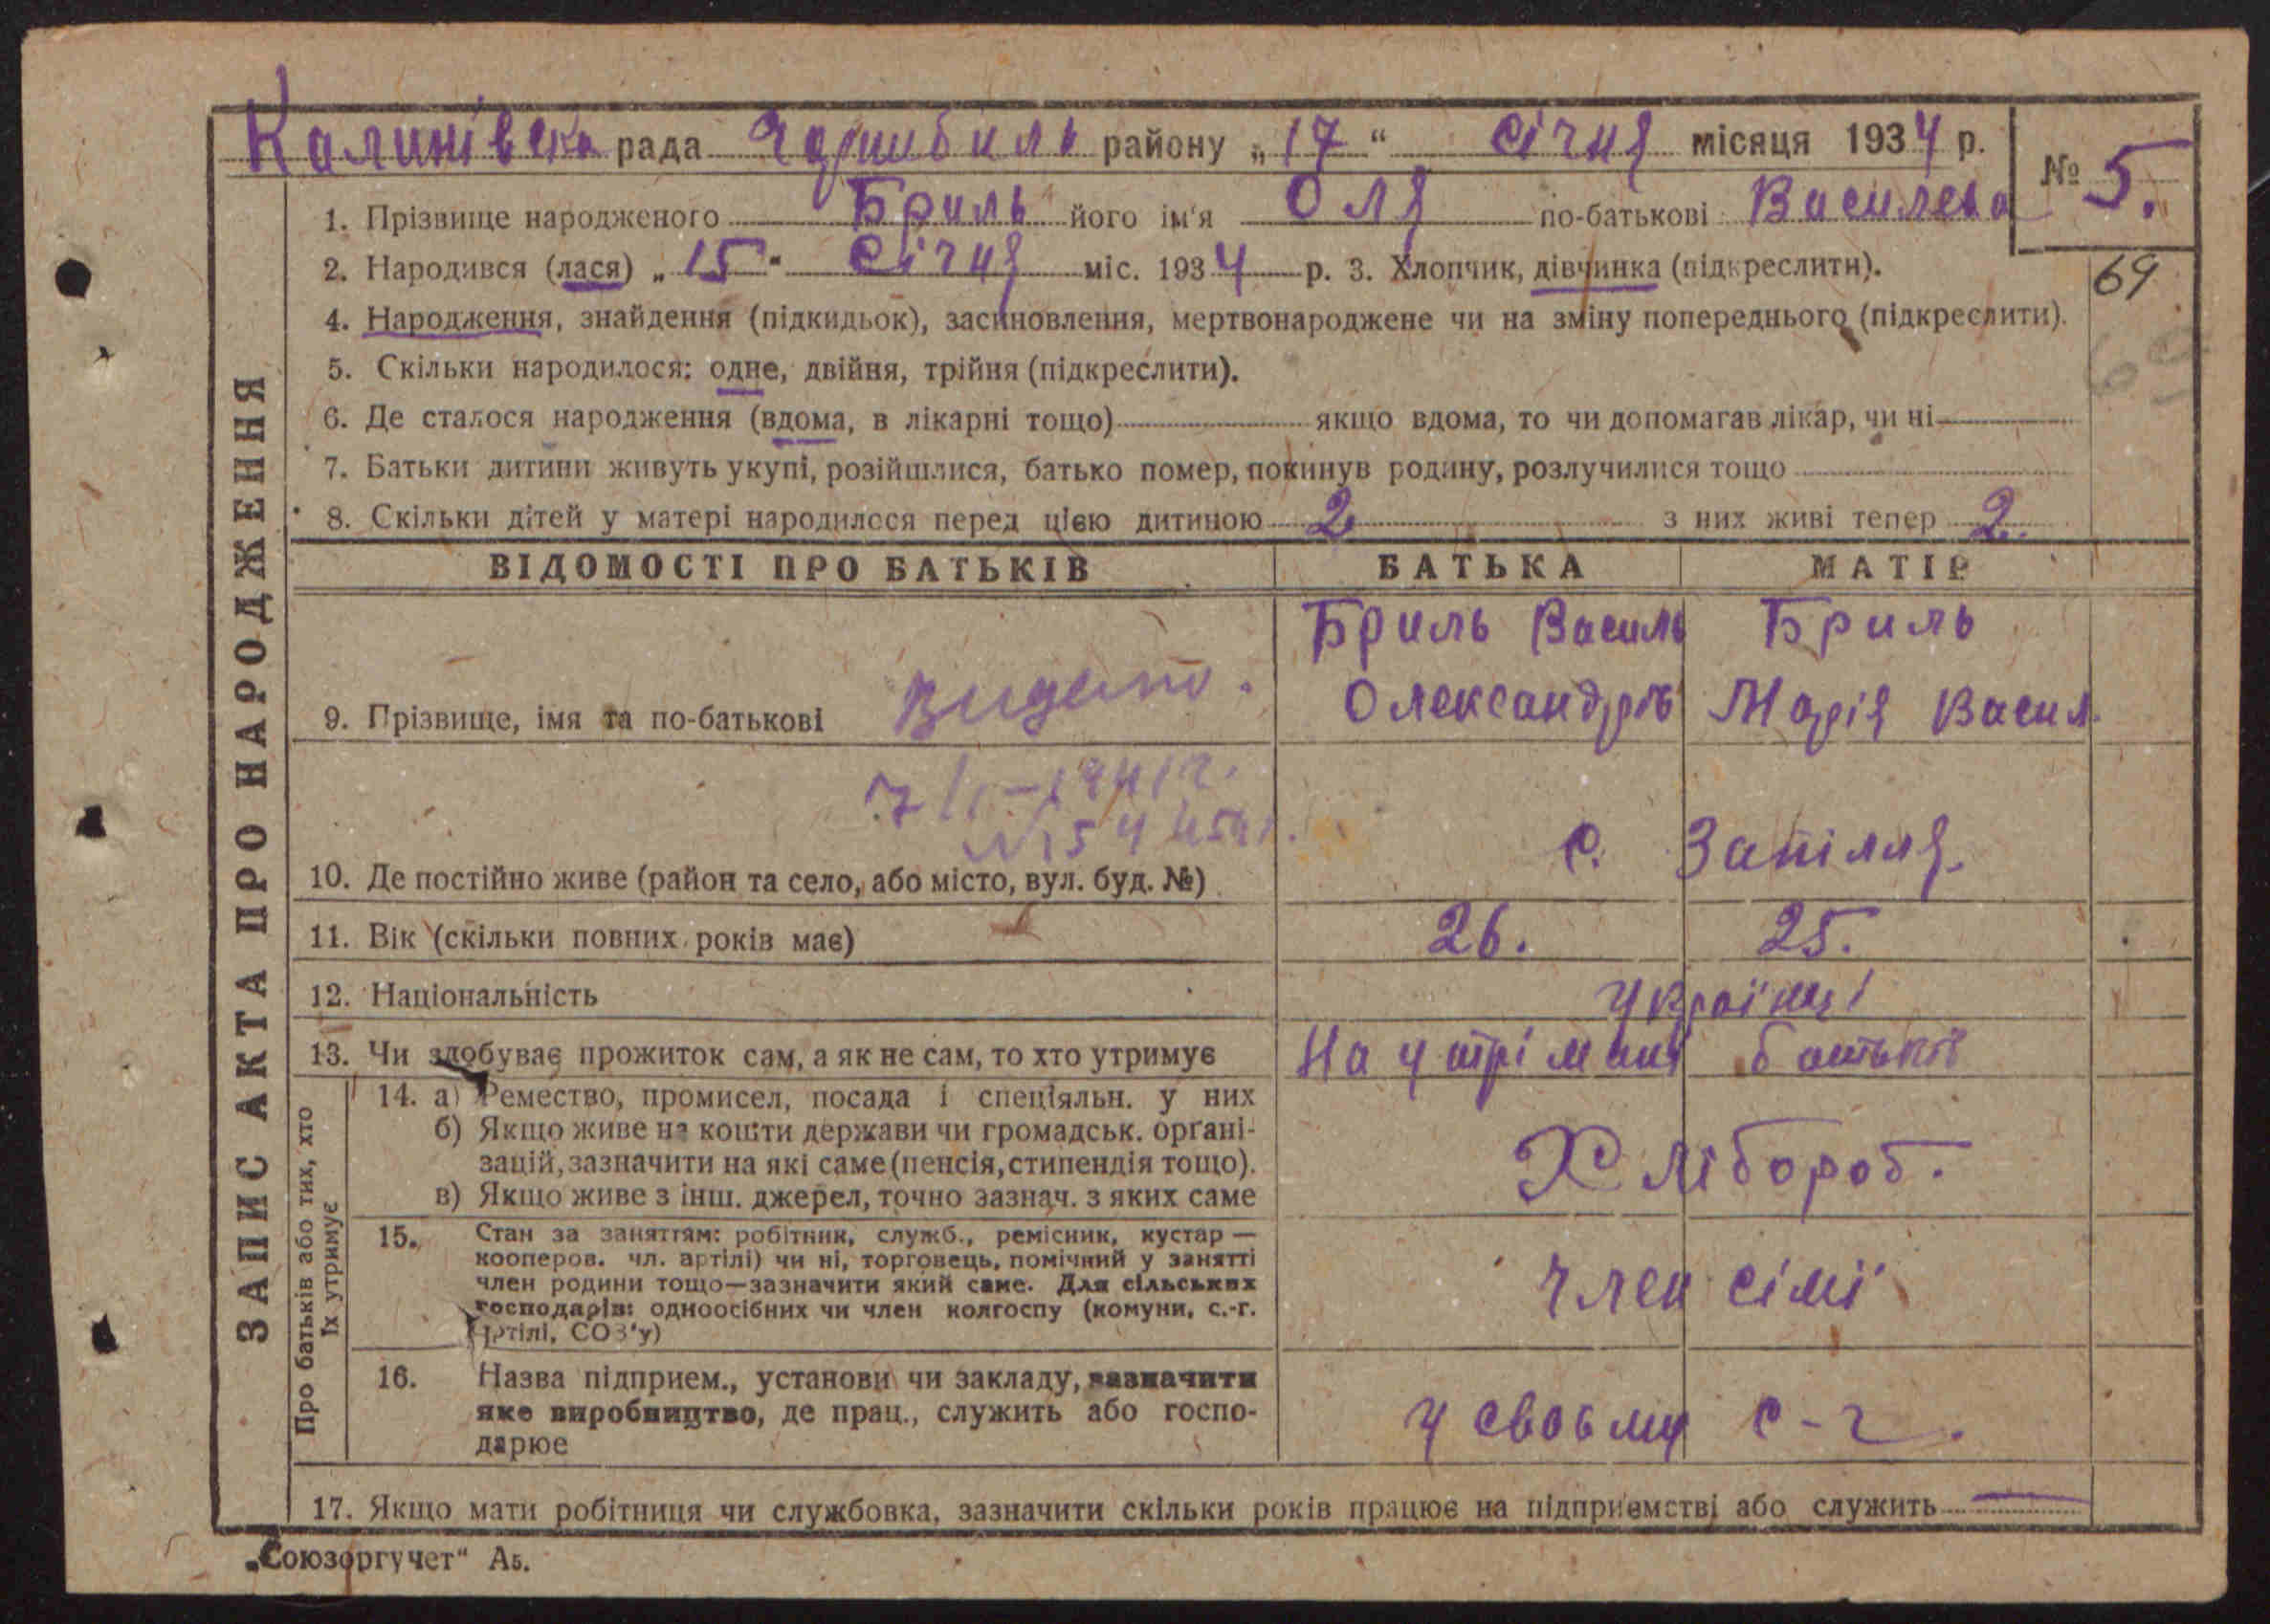 Калинівська рада Чорнобиль району „17“ січня місяця 1934 р.
№ 5.
1. Прізвище народженого Бриль його ім'я Оля по-батькові Василева
2. Народився (лася) „15“ Січня міс. 1934 р. 3. Хлопчик, дівчинка (підкреслити).
69
4. Народження, знайдення (підкидьок), засиновлення, мертвонароджене чи на зміну попереднього (підкреслити).
69
5. Скільки народилося: одне, двійня, трійня (підкреслити).
6. Де сталося народження (вдома, в лікарні тощо) якщо вдома, то чи допомагав лікар, чи ні
7. Батьки дитини живуть укупі, розійшлися, батько помер, покинув родину, розлучилися тощо
8. Скільки дітей у матері народилося перед цією дитиною 2 з них живі тепер 2.
ЗАПИС АКТА ПРО НАРОДЖЕННЯ
ВІДОМОСТІ ПРО БАТЬКІВ БАТЬКА МАТІР
Бриль Василь Бриль
9. Прізвище, імя та по-батькові Видано. Олександрів Марія Васил.
10. Де постійно живе (район та село, або місто, вул. буд. №) с. Запілля.
11. Вік (скільки повних років має) 26. 25.
12. Національність Українці
13. Чи здобуває прожиток сам, а як не сам, то хто утримує На утріманя батьків
Про батьків або тих, хто
їх утримує
14. а) Ремество, промисел, посада і спеціяльн. у них
б) Якщо живе на кошти держави чи громадськ. орґані-
зацій, зазначити на які саме (пенсія, стипендія тощо).
в) Якщо живе з інш. джерел, точно зазнач. з яких саме
Хлібороб.
15. Стан за заняттям: робітник, служб., ремісник, кустар —
кооперов. чл. артілі) чи ні, торговець, помічний у занятті
член родини тощо—зазначити який саме. Для сільських
господарів: одноосібних чи член колгоспу (комуни, с.-г.
артілі, СОЗ'у)
член сімї
16. Назва підприєм., установи чи закладу, зазначити
яке виробництво, де прац., служить або госпо-
дарює
у своєму с-г.
17. Якщо мати робітниця чи службовка, зазначити скільки років працює на підприємстві або служить —
„Союзоргучет“ А5.